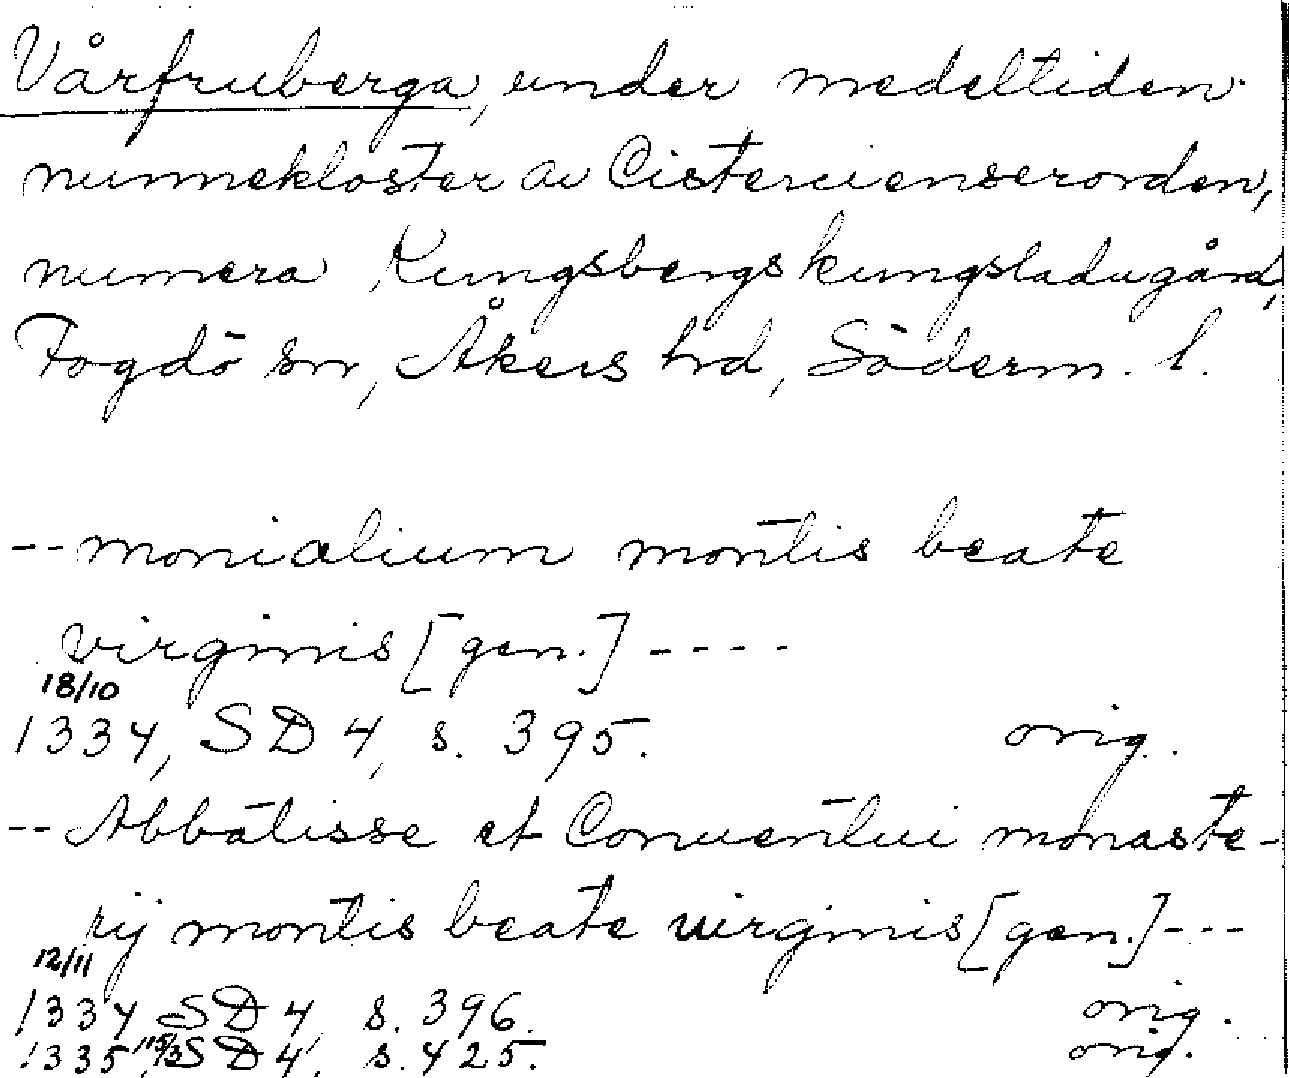 Vårfruberga, under medeltiden
nunnekloster av Cisterciensorden,
numera Kungsbergs kungsladugård,
Fogdö sn, Åkers hrd, Söderm. l.
-- monialium montis beate
virginis [gen.] ----
18/10
1334, SD 4, s. 395. orig.
-- Abbatisse et Conuentui monaste-
rij montis beate uirginis [gen.] ---
12/11
1334 SD 4 s. 396. orig.
1335 SD 4, s. 425. orig.